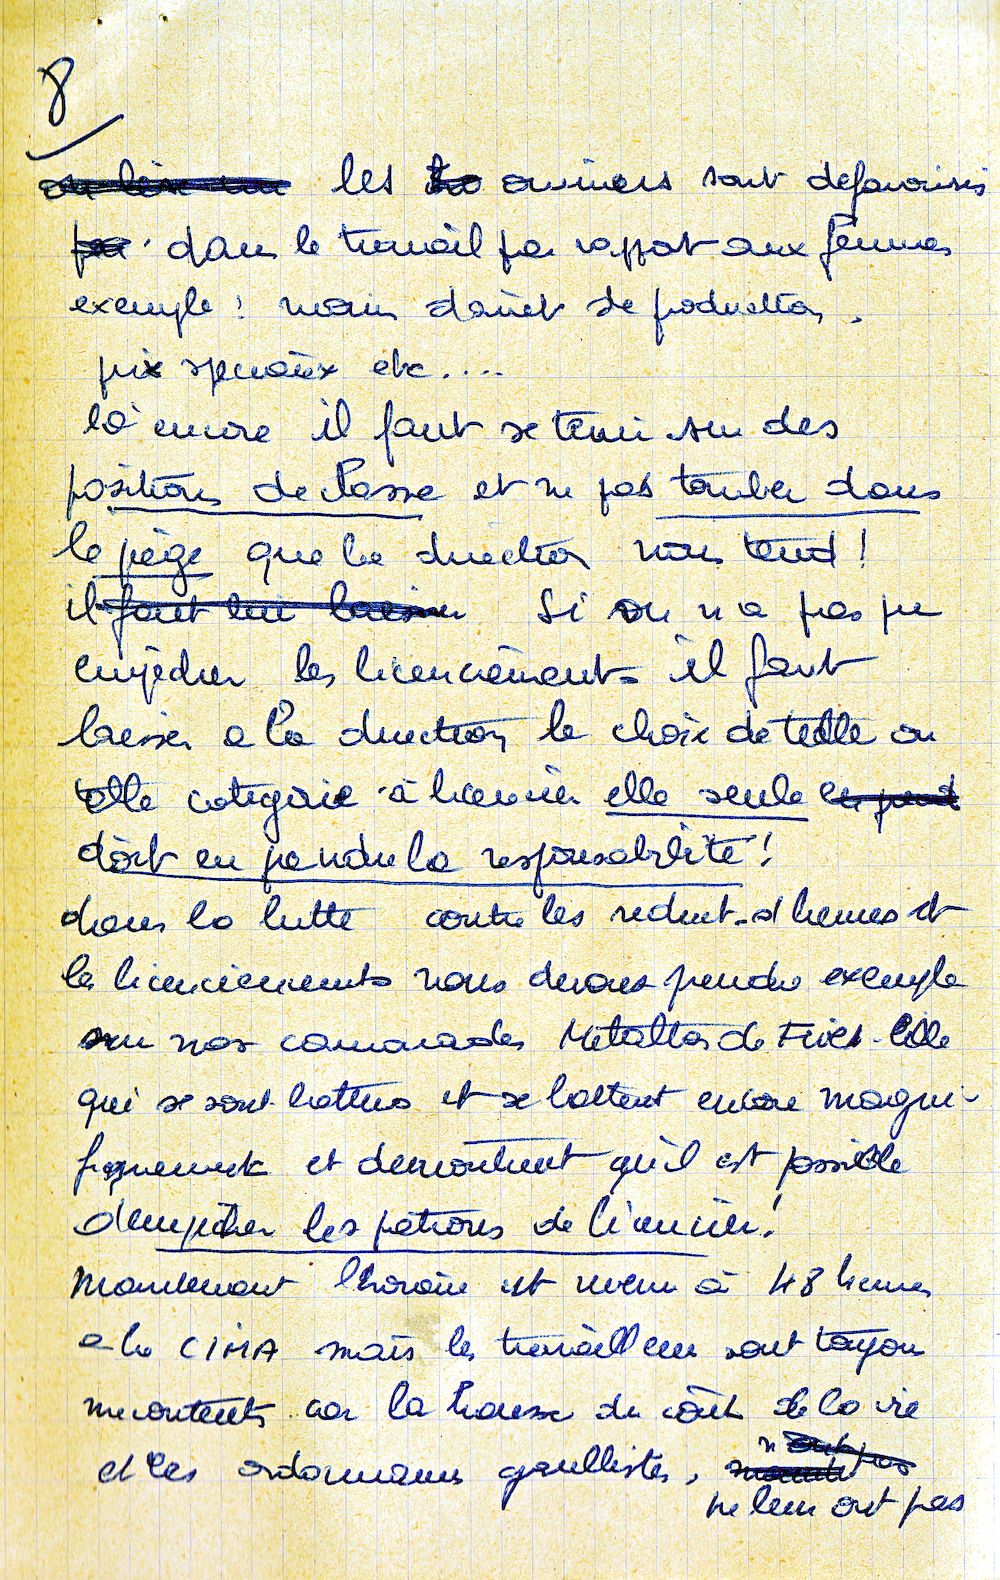 8
les ouvriers sont defavorisés
dans le travail par rapport aux femmes
exemple : moins de production,
prix speciaux etc....
là encore il faut se tenir sur des
positions de classe et ne pas tomber dans
le piège que la direction nous tend !
il faut lui laisser Si on n'a pas pu
empêcher les licenciements il faut
laisser a la direction le choix de telle ou
telle categorie à licencier elle seule en peut
doit en prendre la responsabilité !
dans la lutte contre les reduct. d'heures et
les licenciements nous devons prendre exemple
sur nos camarades Metallos de Fives-Lille
qui se sont battus et se battent encore magni-
fiquement et demontrent qu'il est possible
d'empêcher les patrons de licencier !
Maintenant l'horaire est revenu à 48 heures
a la CIMA mais les travailleurs sont toujours
mecontents car la hausse du coût de la vie
et les ordonnances gaullistes,
ne leur ont pas